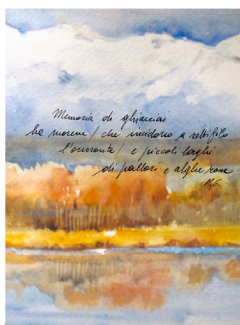 Memoria di ghiacciai
ha morene / che incidono a rettifilo
l'orizzonte / e piccoli laghi
di pallori e alghe